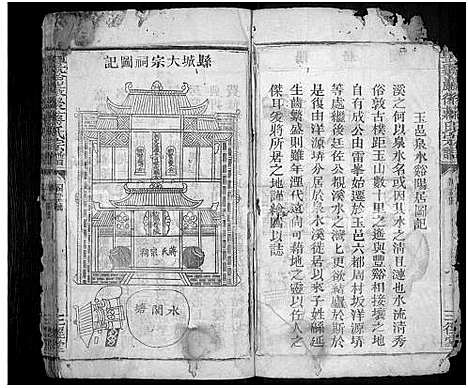 玉邑泉水谿陽居圖記
溪之何以泉水名或因其水之清且漣也水流清秀
俗敦古樸距玉山數十里之遙與豐谿相接壤之地
自有成公由雷峯始遷於玉邑六都周村坂洋源塝
後有諱廷佐公觀溪水之灣上更欲結廬於斯於
是復由洋源塝分居於泉水溪從居以來子姓緜延
生齒繁盛則雖年湮代遠尚可藉地之靈以佐人之
傑耳爰將所居之地謹繪圖以誌
縣城大宗祠圖記
蔣氏宗祠
水閣塘
三徑堂
三徑堂